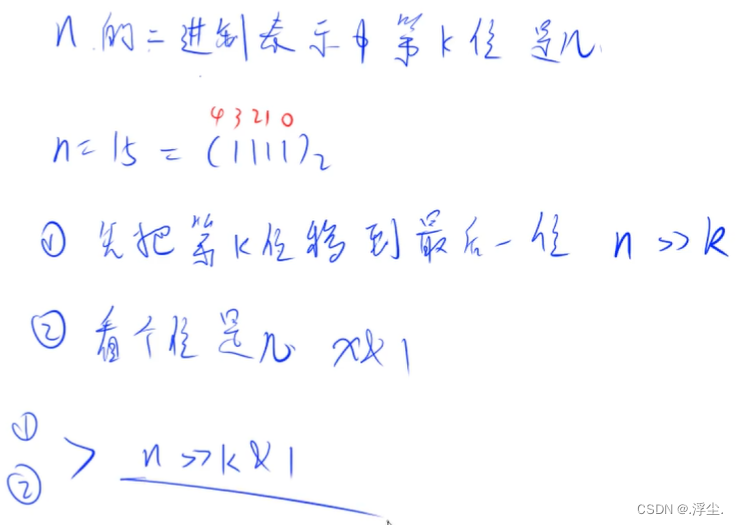 n 的二进制表示中第k位是几
4 3 2 1 0
n = 15 = (1111)2
① 先把第k位移到最后一位 n >> k
② 看个位是几 x & 1
①
② > n >> k & 1
CSDN @.浮尘.